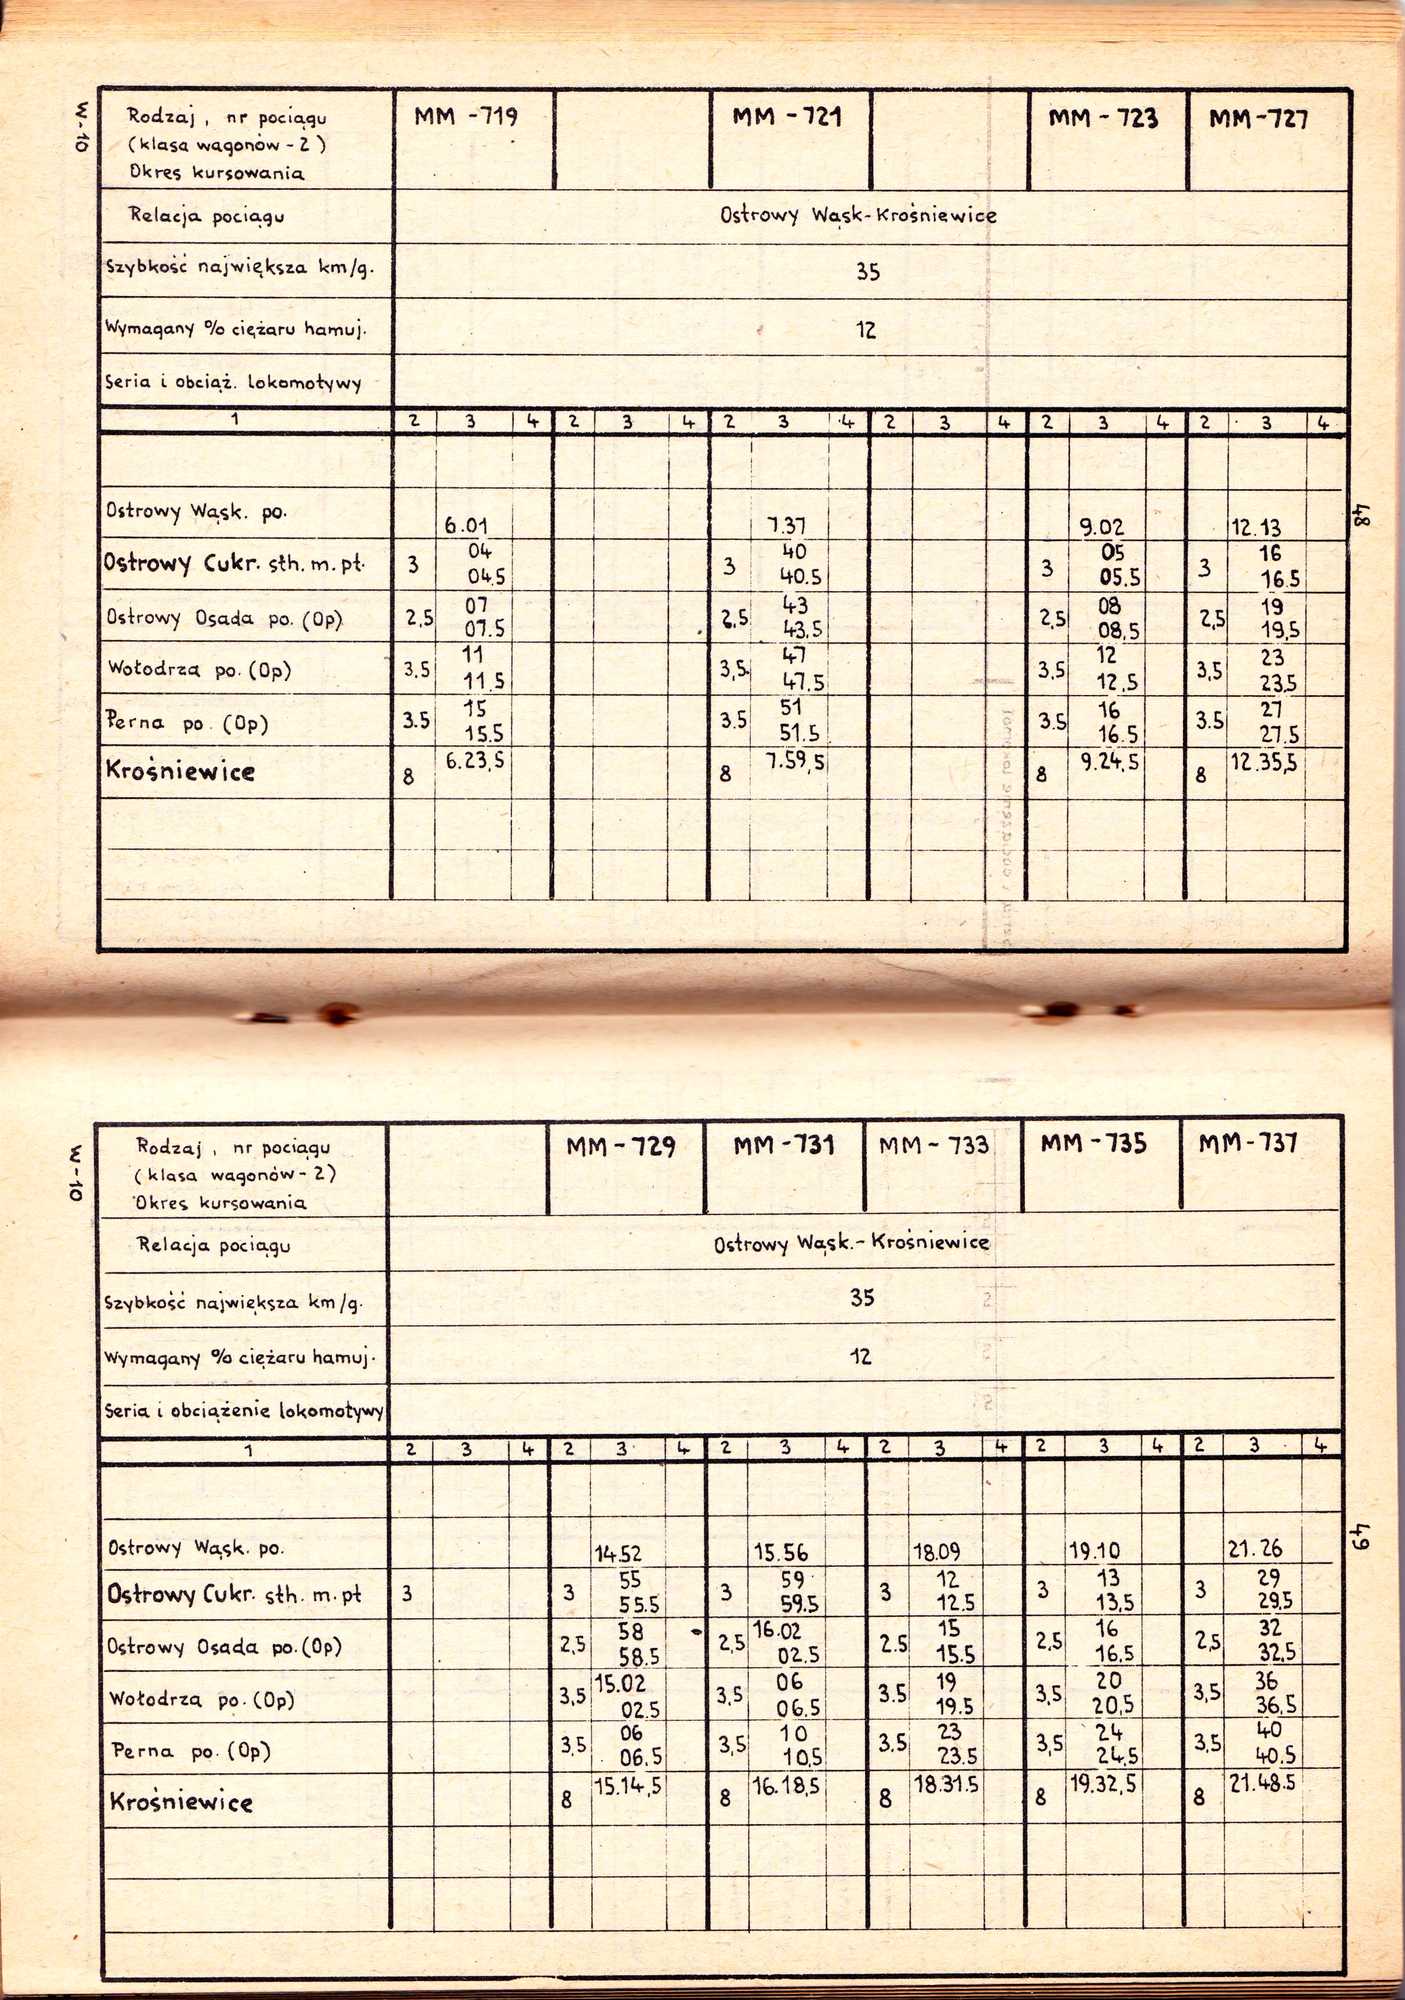 W-10
Rodzaj, nr pociągu
(klasa wagonów - 2)
Okres kursowania
MM - 719 MM - 721 MM - 723 MM - 727
Relacja pociągu Ostrowy Wąsk - Krośniewice
Szybkość największa km/g. 35
Wymagany % ciężaru hamuj. 12
Seria i obciąż. lokomotywy
1 2 3 4 2 3 4 2 3 4 2 3 4 2 3 4 2 3 4
48
Ostrowy Wąsk. po. 6.01 7.37 9.02 12.13
04 40 05 16
Ostrowy Cukr. sth. m. pt. 3 3 3 3
04.5 40.5 05.5 16.5
07 43 08 19
Ostrowy Osada po. (Op) 2,5 2,5 2,5 2,5
07.5 43,5 08,5 19,5
11 47 12 23
Wołodrza po. (Op) 3.5 3,5 3,5 3,5
11.5 47.5 12,5 23.5
15 51 16 27
Perna po. (Op) 3.5 3.5 3.5 3.5
15.5 51.5 16.5 27.5
6.23,5 7.59,5 9.24,5 12.35,5
Krośniewice 8 8 8 8
W-10
Rodzaj, nr pociągu
(klasa wagonów - 2)
Okres kursowania
MM - 729 MM - 731 MM - 733 MM - 735 MM - 737
Relacja pociągu Ostrowy Wąsk. - Krośniewice
Szybkość największa km/g. 35
Wymagany % ciężaru hamuj. 12
Seria i obciążenie lokomotywy
1 2 3 4 2 3 4 2 3 4 2 3 4 2 3 4 2 3 4
49
Ostrowy Wąsk. po. 14.52 15.56 18.09 19.10 21.26
55 59 12 13 29
Ostrowy Cukr. sth. m. pt 3 3 3 3 3 3
55.5 59.5 12.5 13,5 29,5
58 16.02 15 16 32
Ostrowy Osada po. (Op) 2,5 2,5 2.5 2,5 2,5
58.5 02.5 15.5 16,5 32,5
15.02 06 19 20 36
Wołodrza po. (Op) 3,5 3,5 3.5 3,5 3,5
02.5 06.5 19.5 20,5 36,5
06 10 23 24 40
Perna po. (Op) 3,5 3,5 3.5 3,5 3,5
06.5 10,5 23.5 24,5 40.5
15.14,5 16.18,5 18.31.5 19.32,5 21.48.5
Krośniewice 8 8 8 8 8